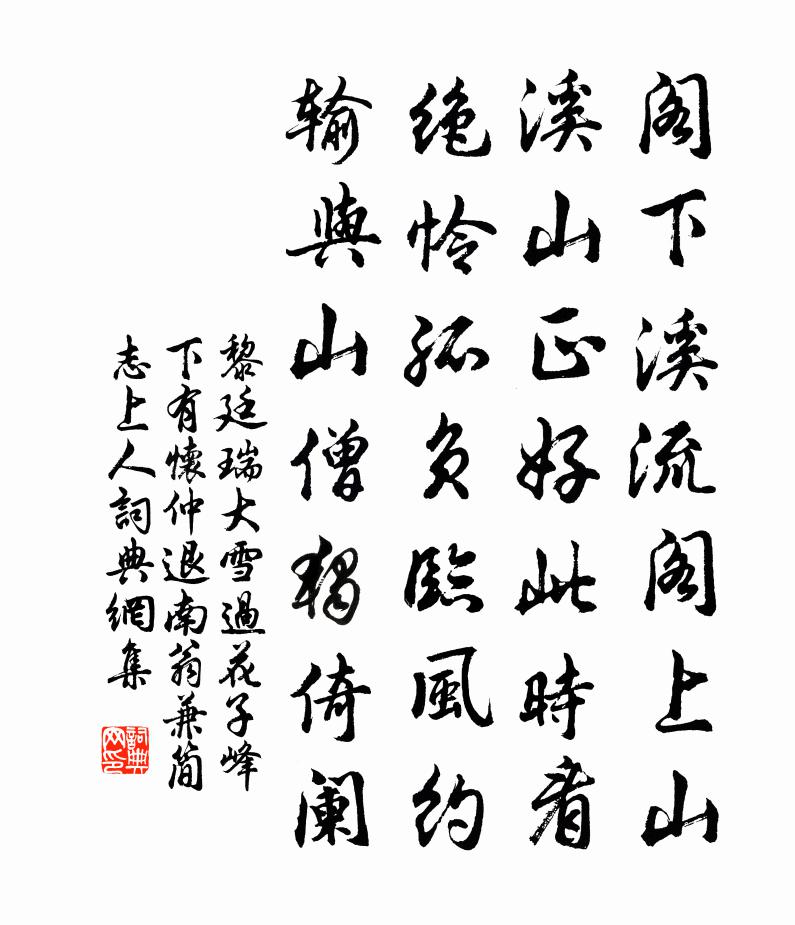 阁下溪流阁上山
溪山正好此時看
绝怜孤负臨風约
输與山僧獨倚阑
黎廷瑞大雪過花子峰
下有懷仲退南翁兼简
志上人詞典網集
詞典
网印